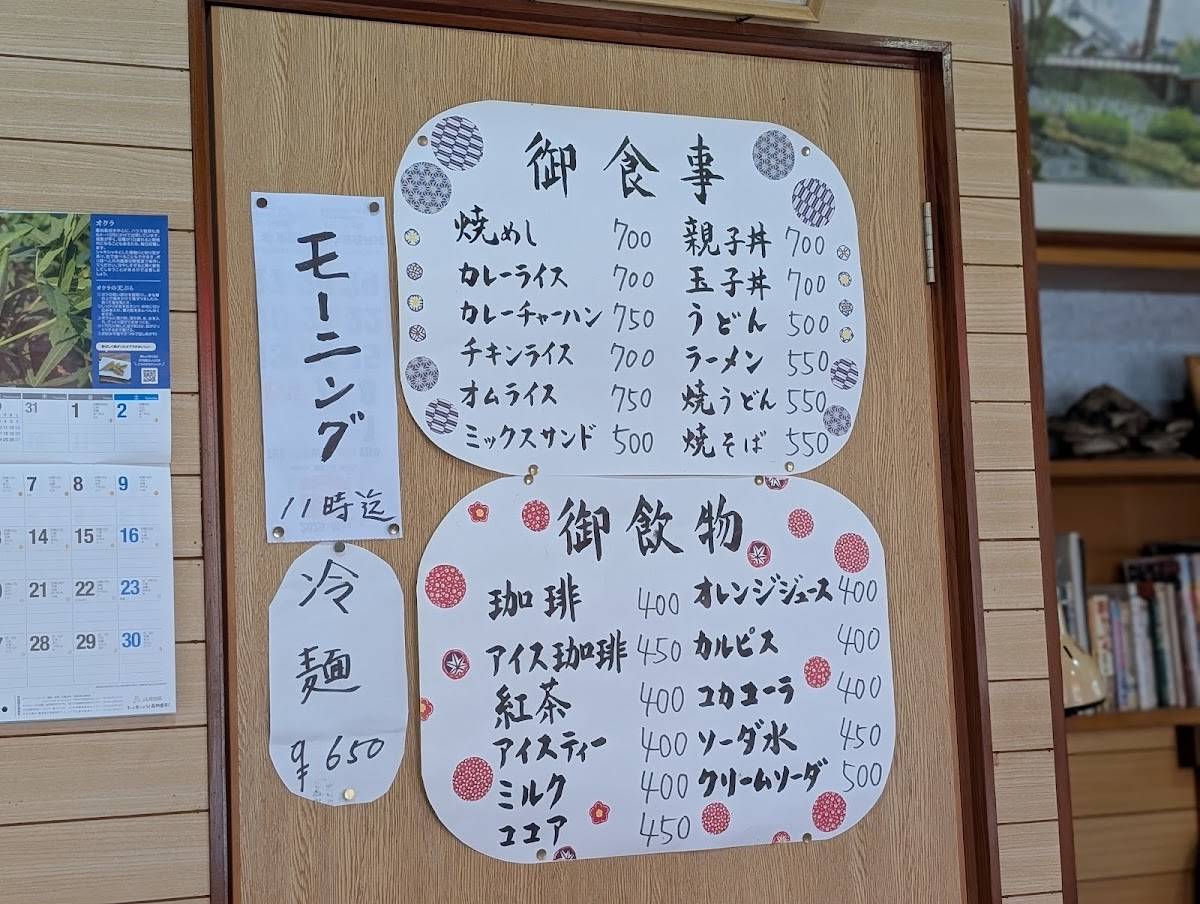 オクラ
オクラの天ぷら
31 1 2
7 8 9
14 15 16
21 22 23
28 29 30
モーニング
11時迄
冷麺
¥650
御食事
焼めし 700
カレーライス 700
カレーチャーハン 750
チキンライス 700
オムライス 750
ミックスサンド 500
親子丼 700
玉子丼 700
うどん 500
ラーメン 550
焼うどん 550
焼そば 550
御飲物
珈琲 400
アイス珈琲 450
紅茶 400
アイスティー 400
ミルク 400
ココア 450
オレンジジュース 400
カルピス 400
コカコーラ 400
ソーダ水 450
クリームソーダ 500